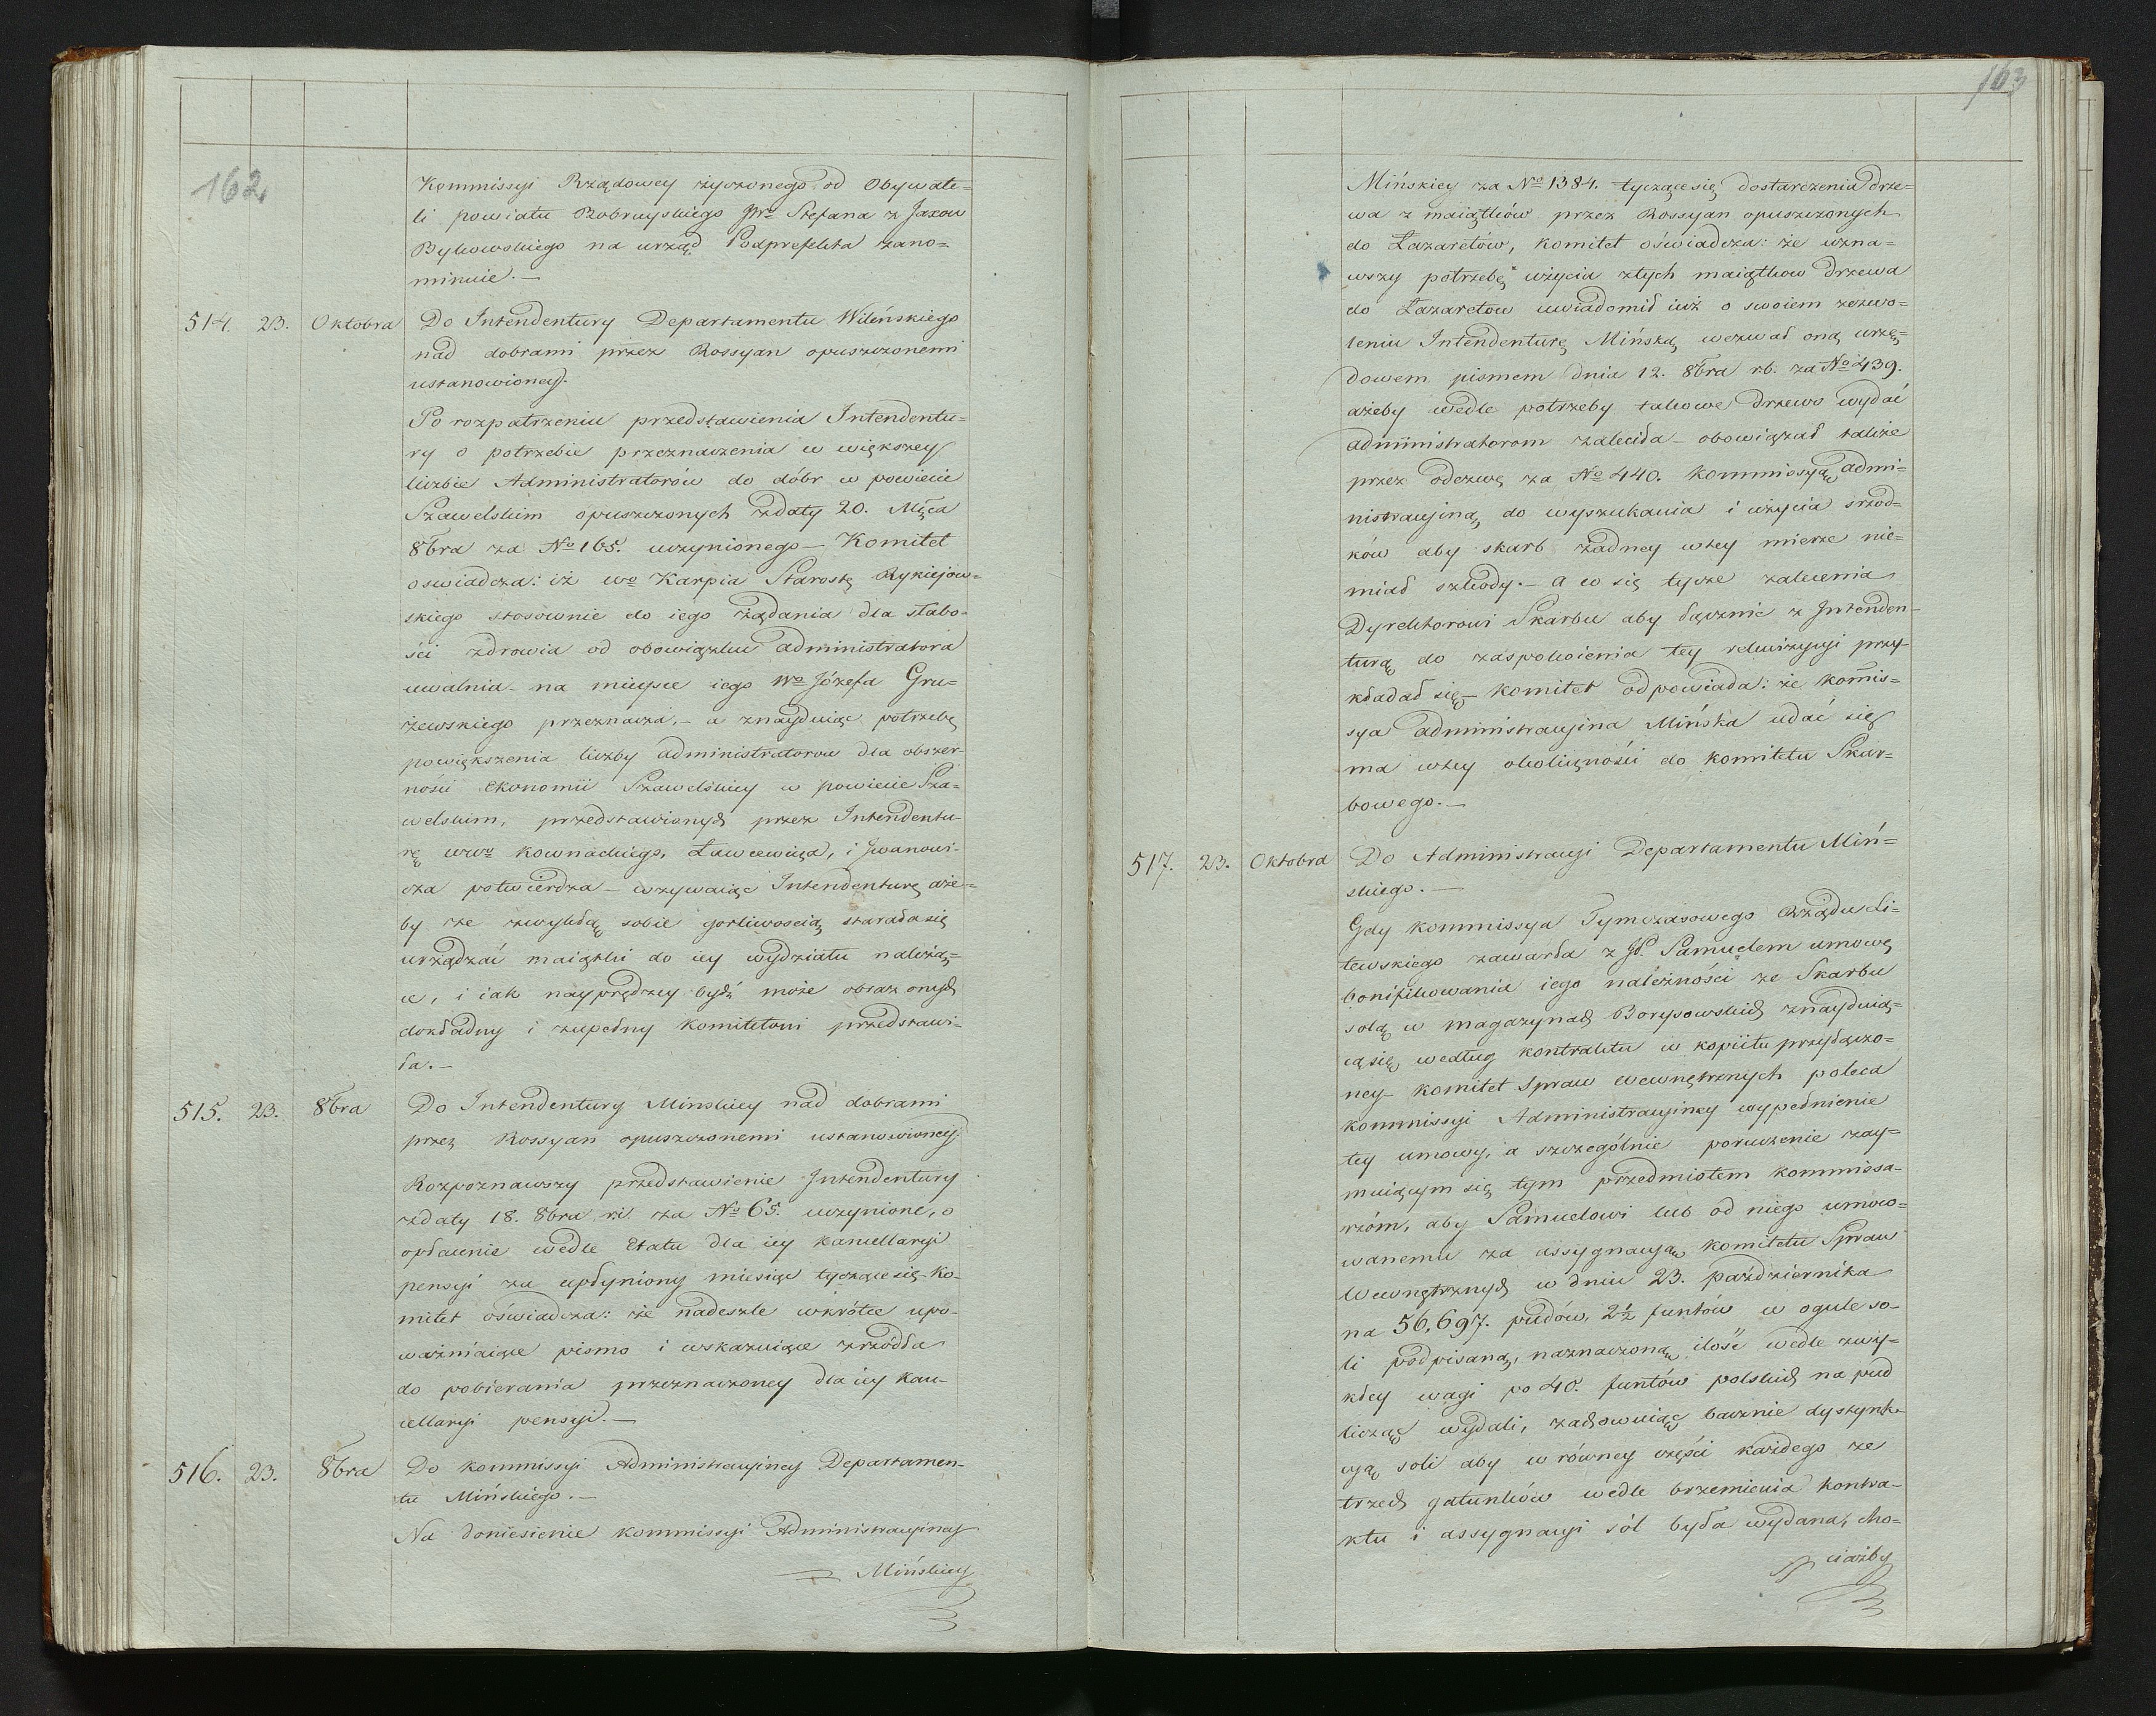 162
Kommissyi Rządowey życzonego od Obywate=
li powiatu Bobruyskiego JPa Stefana z Jaxow
Bykowskiego na urząd Podprefekta zano=
minuie.—
514. 23. Oktobra Do Intendentury Departamentu Wileńskiego
nad dobrami przez Rossyan opuszczonemi
ustanowioney.
Po rozpatrzeniu przedstawienia Intendentu=
ry o potrzebie przeznaczenia w większey
liczbie Administratorów do dóbr w powiecie
Szawelskim opuszczonych z daty 20. Mśca
8bra za No 165. uczynionego — Komitet
oswiadcza: iż Wo Karpia Starostę Rykiejow=
skiego stosownie do iego żądania dla słabo=
ści zdrowia od obowiązku administratora
uwalnia na mieysce iego Wo Józefa Gru=
żewskiego przeznacza,— a znayduiąc potrzebę
powiększenia liczby administratorow dla obszer-
ności Ekonomii Szawelskiey w powiecie Sza=
welskim, przedstawionych przez Intendentu-
rę WWo Kownackiego, Ławcewicza, i Jwanowi-
cza potwierdza — wzywaiąc Intendenturę aże=
by ze zwykłą sobie gorliwoscią starała się
urządzać maiątki do iey wydziatu należą=
ce, i iak nayprędzey bydź może obraz onych
dokładny i zupełny Komitetowi przedstawi-
ła.—
515. 23. 8bra Do Intendentury Minskiey nad dobrami
przez Rossyan opuszczonemi ustanowioney
Rozpoznawszy przedstawienie Intendentury
z daty 18. 8bra r.b. za No 65. uczynione, o
opłacenie wedle Etatu dla iey kancellaryi
pensyi za upłyniony miesiąc tyczące się — Ko-
mitet oświadcza: że nadeszle wkrótce upo-
ważniaiące pismo i wskazuiące zrzódła
do pobierania przeznaczoney dla iey kan-
cellaryi pensyi.—
516. 23. 8bra Do kommissyi Administracyiney Departamen-
tu Mińskiego.—
Na doniesienie kommissyi Administracyiney
Mińskiey
163
Mińskiey za No 1384. tyczące się dostarczenia drze=
wa z maiątków przez Rossyan opuszczonych
do Łazaretów, komitet oświadcza: że uzna=
wszy potrzebę użycia z tych maiątkow drzewa
do Łazaretow uwiadomił iuż o swoiem zezwo=
leniu Intendenturę Mińską, wezwał oną urzę=
dowem pismem dnia 12. 8bra rb. za No 439.
ażeby wedle potrzeby takowe drzewo wydać
administratorom zaleciła — obowiązał także
przez odezwę za No 440. kommissyą admi=
nistracyiną do wyszukania i użycia srzod=
ków aby skarb żadney w tey mierze nie=
miał szkody.— a co się tycze zalecenia
Dyrektorowi Skarbu aby łącznie z Intenden-
turą do zaspokoienia tey rekwizycyi przy-
kładał się — komitet odpowiada: że kommis=
sya administracyina Mińska udać się
ma w tey okoliczności do komitetu Skar=
bowego.—
517. 23. Oktobra Do Administracyi Departamentu Miń=
skiego.—
Gdy kommissya Tymczasowego Rządu Li=
tewskiego zawarła z JP. Samuelem umowę
bonifikowania iego należności ze Skarbu
solą w magazynach Borysowskich znayduią=
cą się, według kontraktu w kopii tu przyłączo=
ney — komitet Spraw wewnętrznych poleca
kommissyi Administracyiney wypełnienie
tey umowy, a szczególnie poruczenie zay=
muiącym się tym przedmiotem kommissa-
rzóm, aby Samuelowi lub od niego umoco=
wanemu za assygnacyą komitetu Spraw
Wewnętrznych w dniu 23. października
na 56,697. pudów, 2½ funtów w ogule so-
li podpisaną, naznaczoną ilość wedle zwy=
kłey wagi po 40. funtów polskich na pud
licząc wydali, zachowuiąc bacznie dystynk-
cyą soli aby w równey części każdego ze
trzech gatunków wedle brzemienia kontra-
ktu i assygnacyi sól była wydana, cho=
ciażby